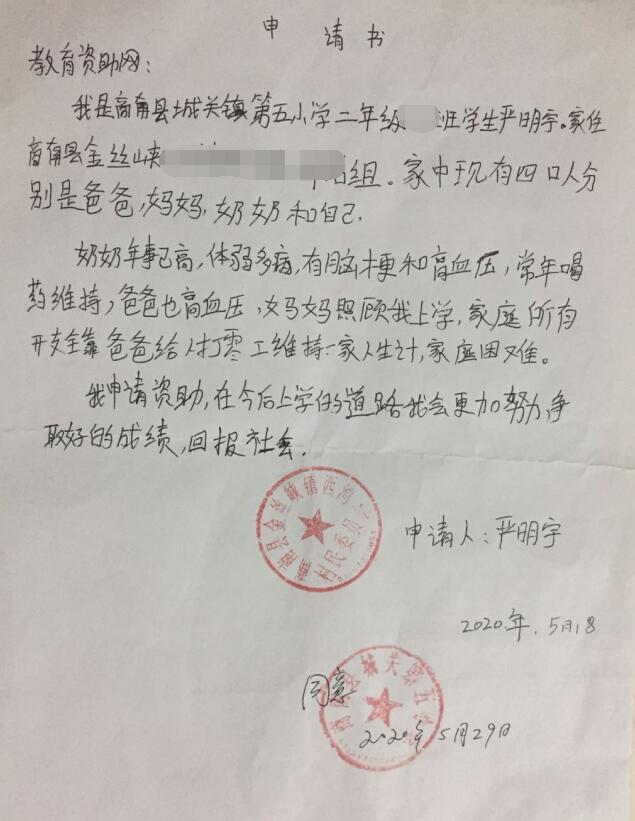 申请书
教育资助网：
我是商南县城关镇第五小学二年级班学生严明宇。家住
商南县金丝峡组。家中现有四口人分
别是爸爸，妈妈，奶奶和自己.
奶奶年事已高，体弱多病，有脑梗和高血压，常年喝
药维持，爸爸也高血压，妈妈照顾我上学，家庭所有
开支全靠爸爸给人打零工维持一家人生计，家庭困难。
我申请资助，在今后上学的道路我会更加努力争
取好的成绩，回报社会.
商南县金丝峡镇西湾
村民委员会
申请人：严明宇
2020年.5月18
城关第五
同意
2020年5月29日